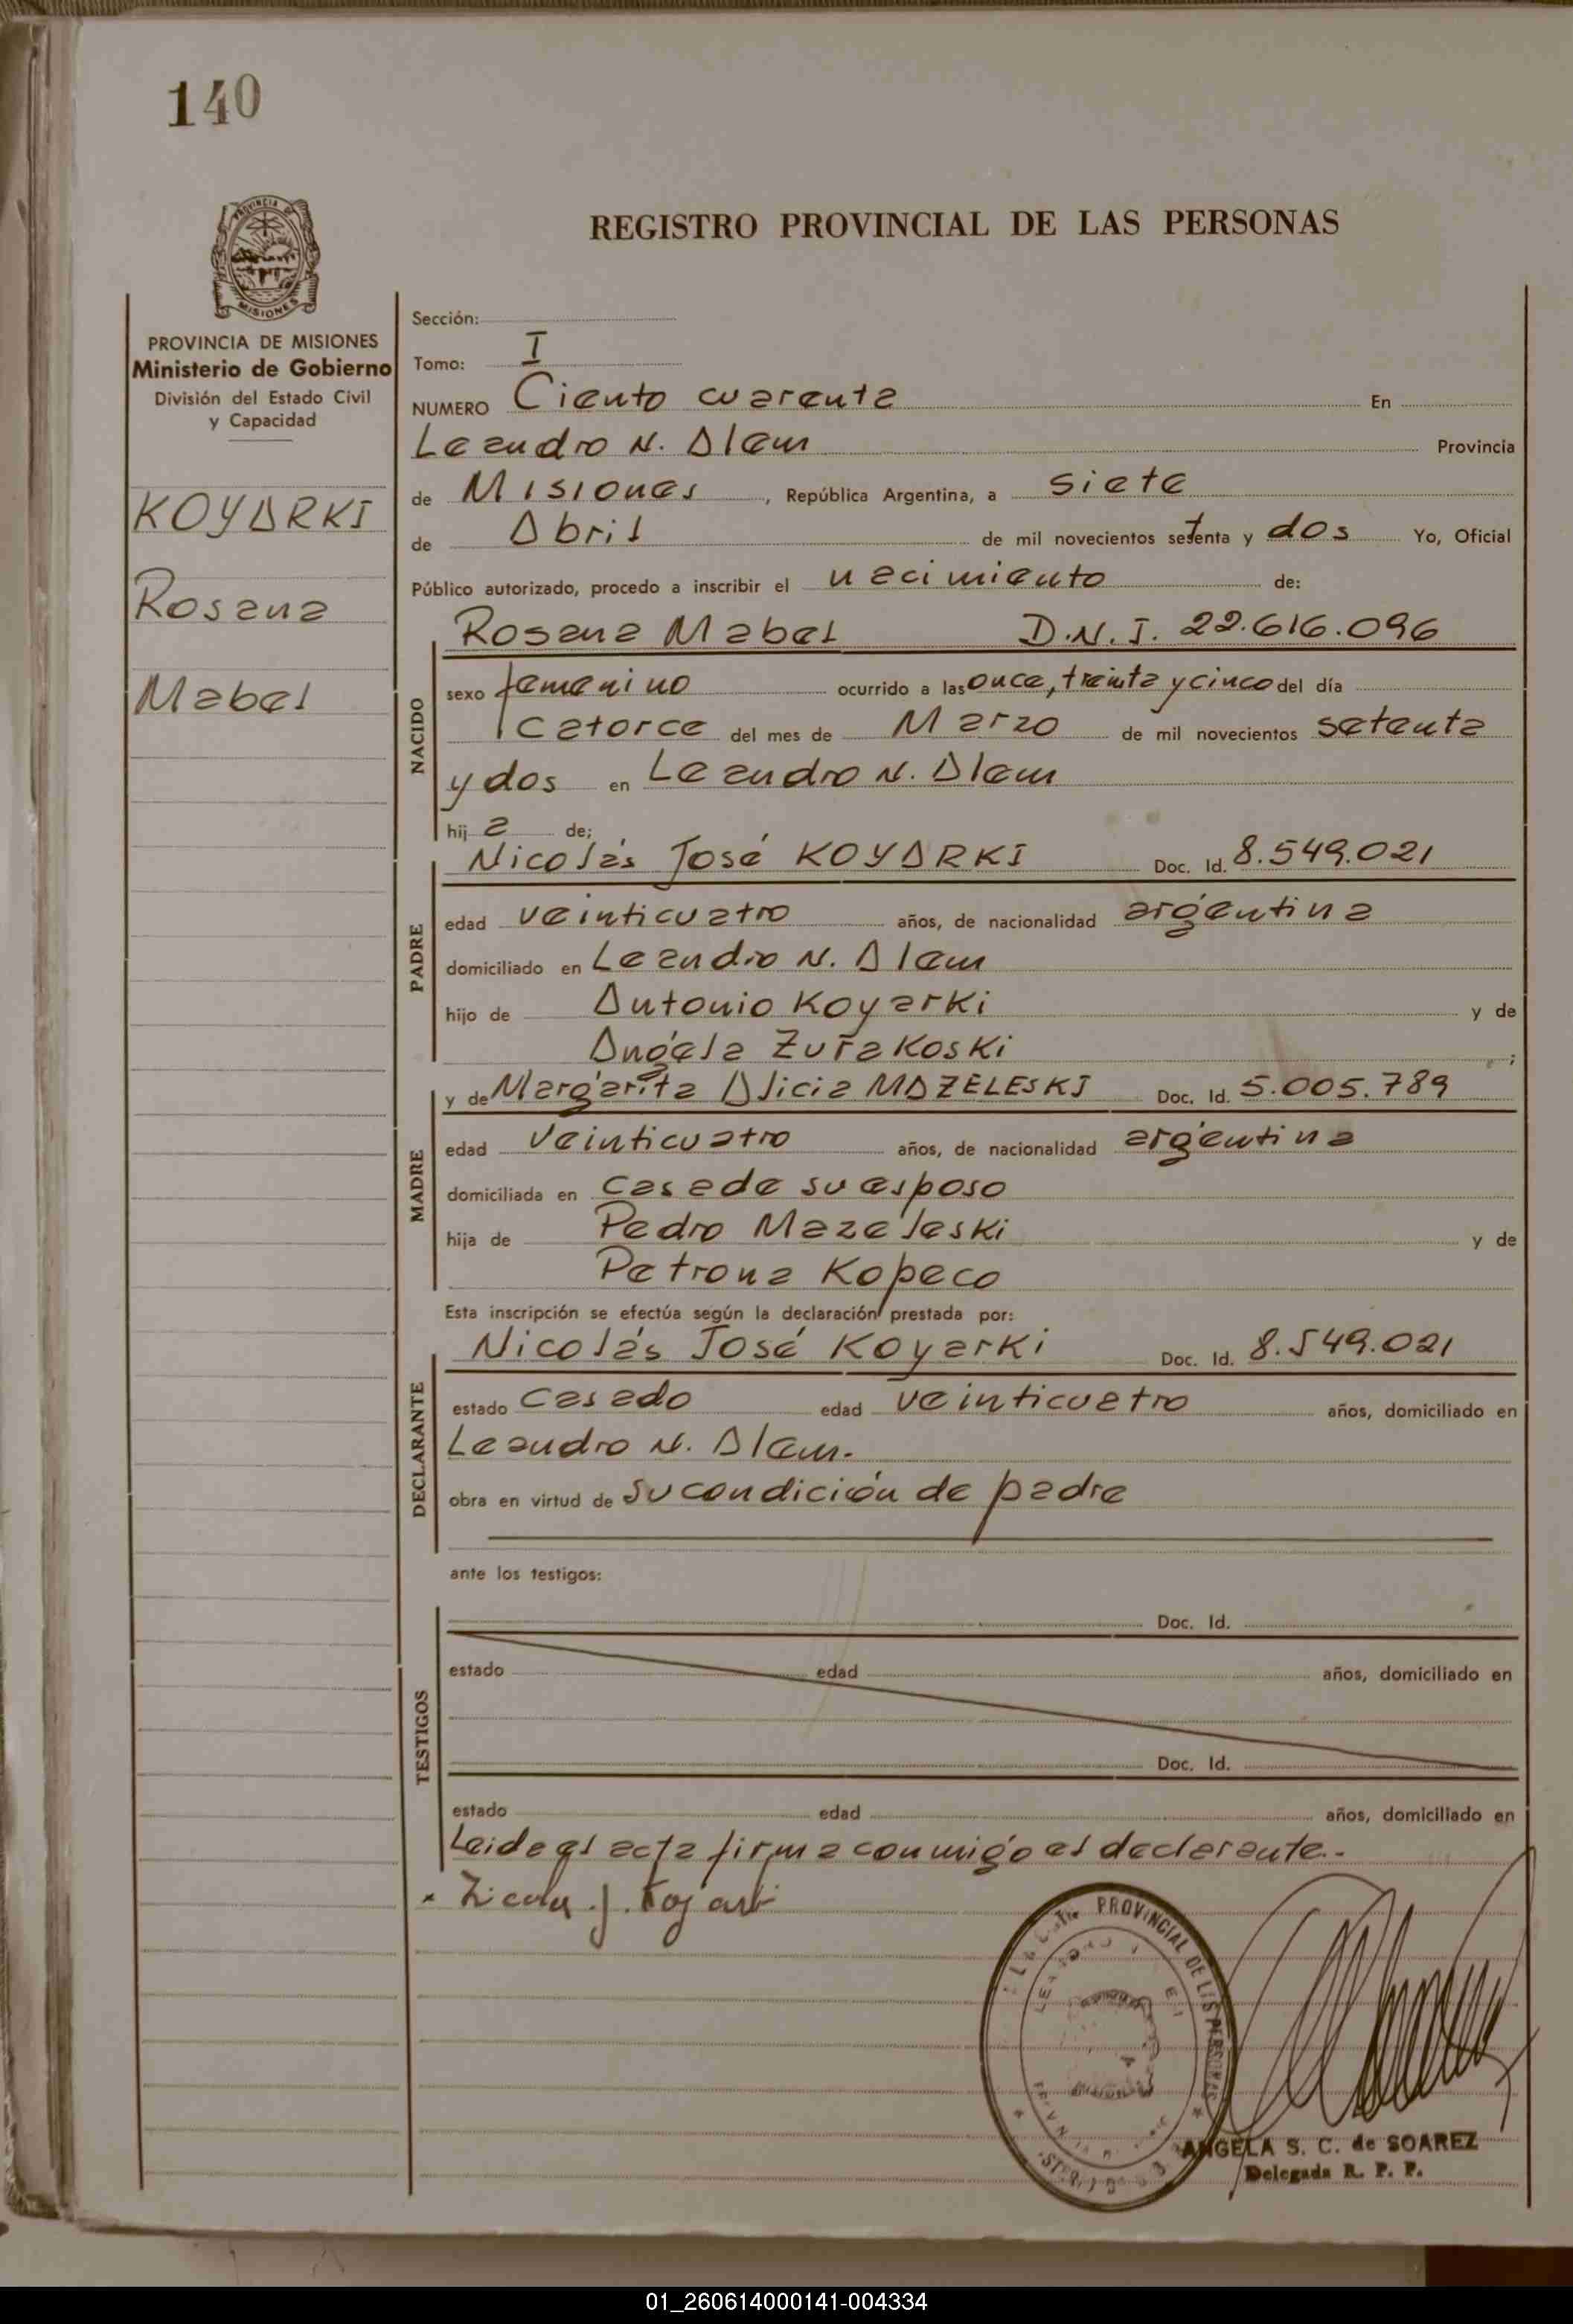 140
REGISTRO PROVINCIAL DE LAS PERSONAS
PROVINCIA DE MISIONES
PROVINCIA DE MISIONES
Ministerio de Gobierno
División del Estado Civil
y Capacidad
KOYARKI
Rosana
Mabel
Sección:
Tomo: I
NUMERO Ciento cuarenta En
Leandro N. Alem Provincia
de Misiones, República Argentina, a siete
de Abril de mil novecientos setenta y dos Yo, Oficial
Público autorizado, procedo a inscribir el nacimiento de:
Rosana Mabel D.N.I. 22.616.096
NACIDO
sexo femenino ocurrido a las once, treinta y cinco del día
catorce del mes de Marzo de mil novecientos setenta
y dos en Leandro N. Alem
hij a de;
Nicolás José KOYARKI Doc. Id. 8.549.021
PADRE
edad veinticuatro años, de nacionalidad argentina
domiciliado en Leandro N. Alem
hijo de Antonio Koyarki y de
Angela Zurakoski ;
y de Margarita Alicia MAZELESKI Doc. Id. 5.005.789
MADRE
edad veinticuatro años, de nacionalidad argentina
domiciliada en casa de su esposo
hija de Pedro Mazeleski y de
Petrona Kopeco
Esta inscripción se efectúa según la declaración prestada por:
Nicolás José Koyarki Doc. Id. 8.549.021
DECLARANTE
estado casado edad veinticuatro años, domiciliado en
Leandro N. Alem.
obra en virtud de su condición de padre
ante los testigos:
Doc. Id.
TESTIGOS
estado edad años, domiciliado en
Doc. Id.
estado edad años, domiciliado en
Leida el acta firma conmigo el declarante.-
PROVINCIAL DE LAS PERSONAS
ANGELA S. C. de SOAREZ
Delegada R. P. P.
01_260614000141-004334